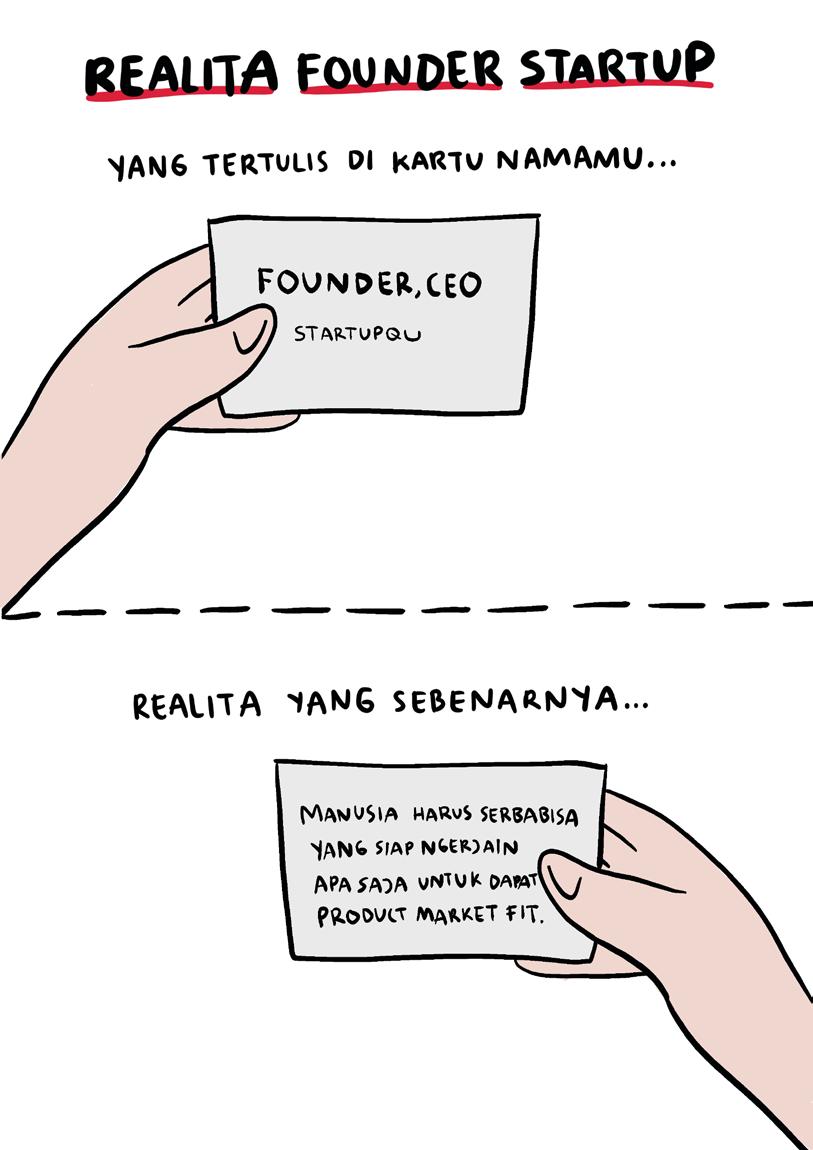 REALITA FOUNDER STARTUP
YANG TERTULIS DI KARTU NAMAMU...
FOUNDER, CEO
STARTUPQU
REALITA YANG SEBENARNYA...
MANUSIA HARUS SERBABISA
YANG SIAP NGERJAIN
APA SAJA UNTUK DAPAT
PRODUCT MARKET FIT.